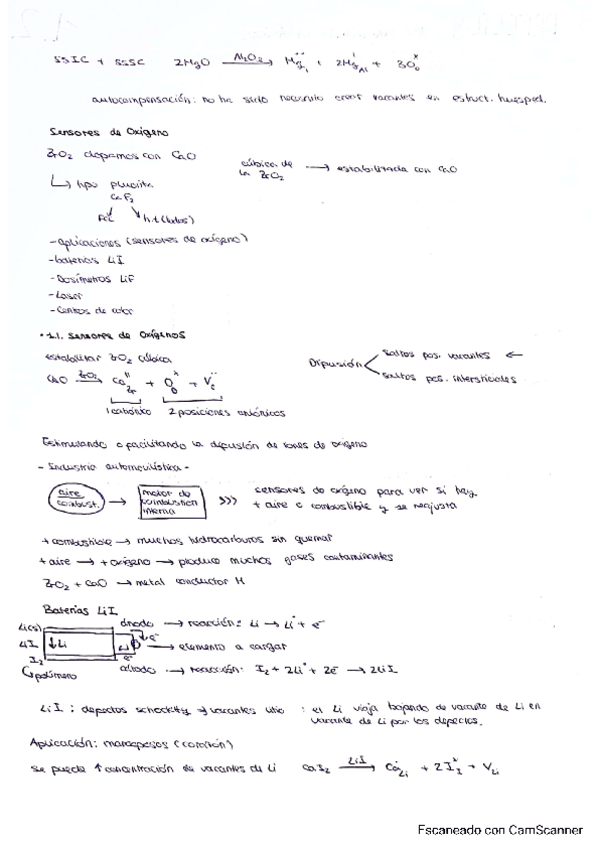 SSIC + SSSC 2MgO —Al₂O₃→ Mg¨ᵢ + 2Mg'Al + 3Oₒˣ
autocompensación: no ha sido necesario crear vacantes en estruct. huesped.
Sensores de Oxígeno
ZrO₂ dopamos con CaO cúbica de la ZrO₂ → estabilizada con CaO
↳ tipo fluorita
CaF₂
FCC h.t (todos)
- aplicaciones (sensores de oxígeno)
- baterías LiI
- Dosímetros LiF
- Laser
- Centros de color
• 1.1. Sensores de Oxígenos
estabilizar ZrO₂ cúbica
Difusión < saltos pos. vacantes ←
saltos pos. intersticiales
CaO —ZrO₂→ Ca''Zr + Oₒˣ + V¨ₒ
1 catiónico 2 posiciones aniónicas
Estimulando o facilitando la difusión de iones de oxígeno
- Industria automovilística -
aire combust. → motor de combustion interna >>> sensores de oxígeno para ver si hay
+ aire o combustible y se reajusta
+ combustible → muchos hidrocarburos sin quemar
+ aire → + oxígeno → produce muchos gases contaminantes
ZrO₂ + CaO → metal conductor
Baterías LiI
Li(s) ánodo → reacción: Li → Li⁺ + e⁻
LiI ↓Li e⁻ → elemento a cargar
I₂ e⁻ cátodo → reacción: I₂ + 2Li⁺ + 2e⁻ → 2LiI
↳ polímero
LiI : defectos schottky → vacantes litio : el Li viaja bajando de vacante de Li en
vacante de Li por los defectos.
Aplicación: marcapasos (corazón)
Se puede ↑ concentración de vacantes de Li CaI₂ —LiI→ Ca˙Li + 2Iˣ_I + V'Li
Escaneado con CamScanner